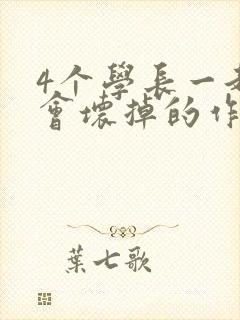 4个學長一
會壞掉的作
葉七歌